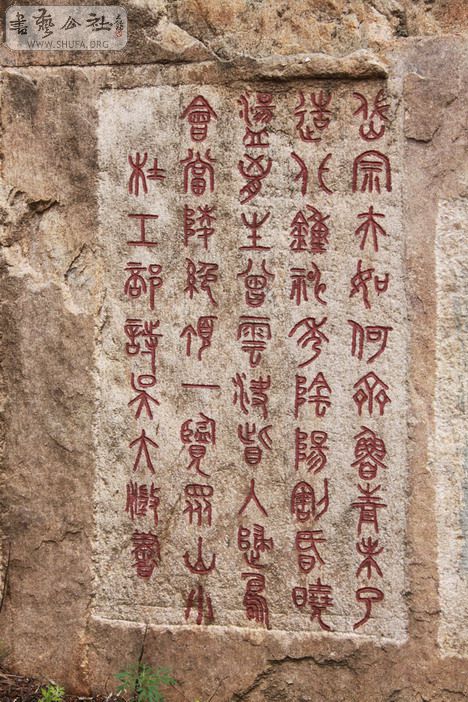 書藝公社
WWW.SHUFA.ORG
岱宗夫如何齊魯青未了
造化鍾神秀陰陽割昏曉
盪匈生曾雲決眥入歸鳥
會當陵絕頂一覽眾山小
杜工部詩吳大澂書